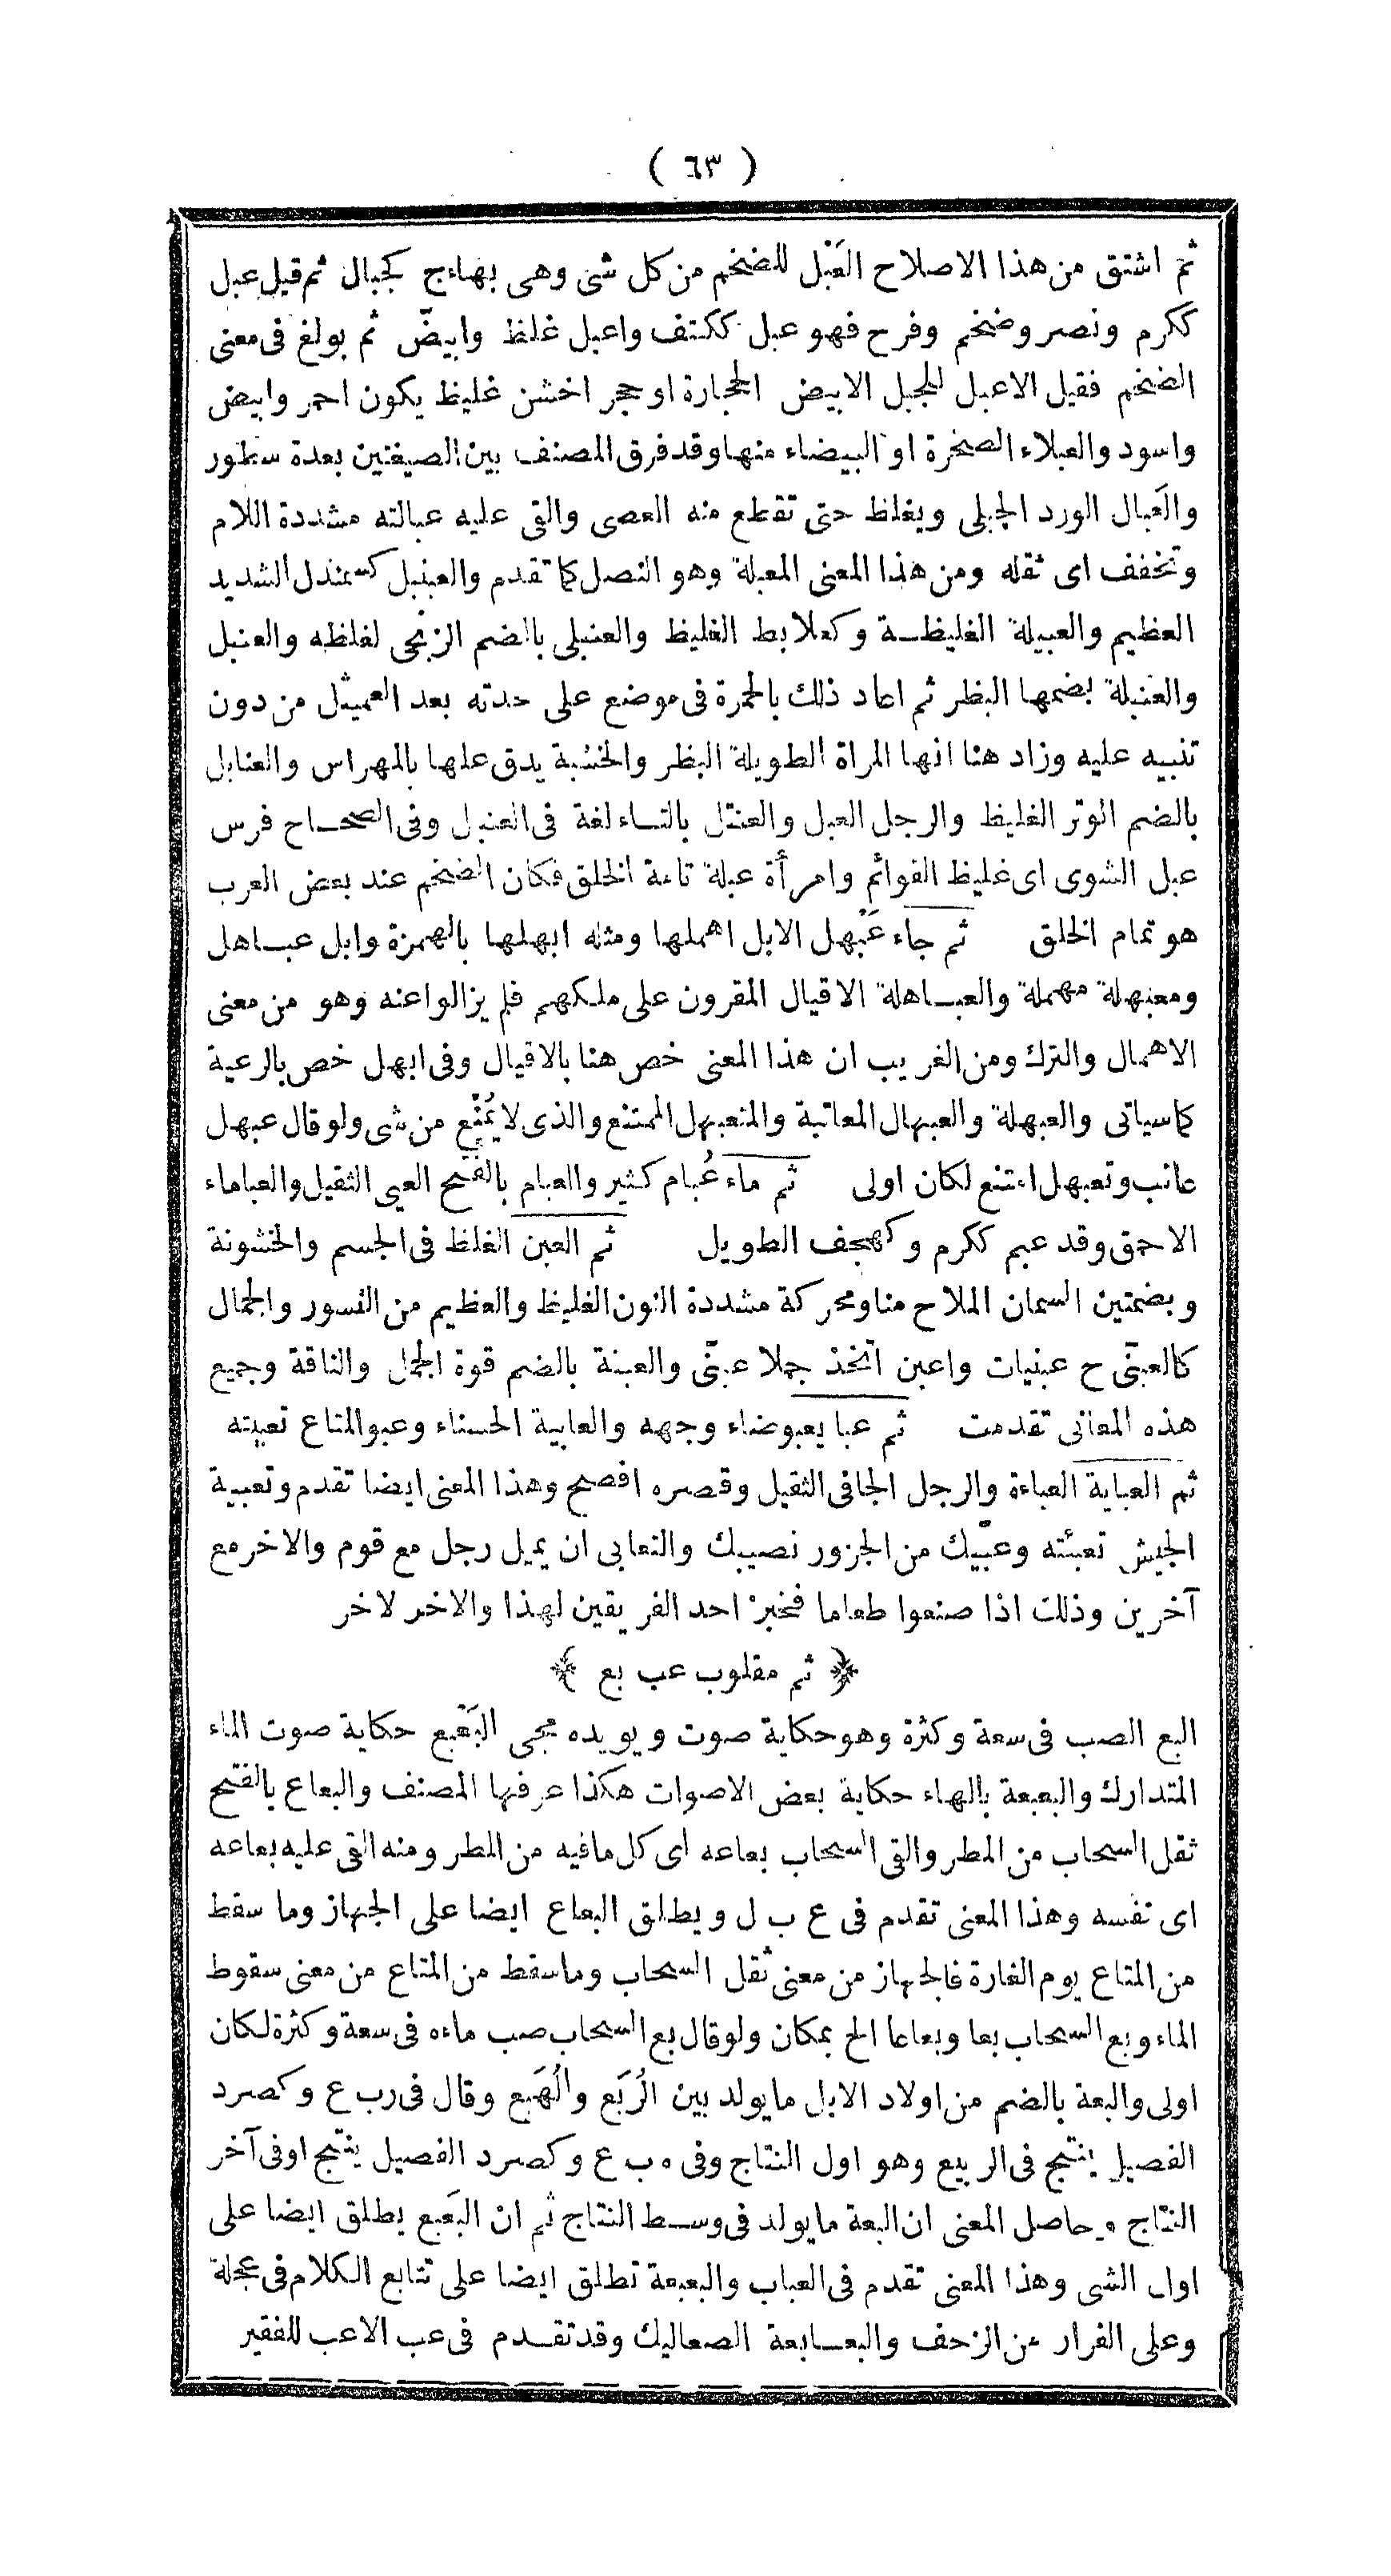 ( ٦٣ )
ثم اشتق من هذا الاصلاح العَبْل للضخم من كل شئ وهى بهاء ج كجبال ثم قيل عبل
ككرم ونصر وضخم وفرح فهو عبل ككتف واعبل غلظ وابيضّ ثم بولغ فى معنى
الضخم فقيل الاعبل للجبل الابيض الحجارة او حجر اخشن غليظ يكون احمر وابيض
واسود والعبلاء الصخرة او البيضاء منها وقد فرق المصنف بين الصيغتين بعدة سطور
والعَبال الورد الجبلى ويغلظ حتى تقطع منه العصى والقى عليه عبالته مشددة اللام
وتخفف اى ثقله ومن هذا المعنى المعبلة وهو النصل كما تقدم والعبنبل كسمندل الشديد
العظيم والعبيلة الغليظة وكعلابط الغليظ والعنبلى بالضم الزنجى لغلظه والعنبل
والعنبلة بضمها البظر ثم اعاد ذلك بالحمرة فى موضع على حدته بعد العميثل من دون
تنبيه عليه وزاد هنا انها المراة الطويلة البظر والخشبة يدق علها بالمهراس والعنابل
بالضم الوتر الغليظ والرجل العبل والعنتل بالتاء لغة فى العنبل وفى الصحاح فرس
عبل الشوى اى غليظ القوائم وامرأة عبلة تامة الخلق فكان الضخم عند بعض العرب
هو تمام الخلق ثم جاء عَبْهل الابل اهملها ومثله ابهلها بالهمزة وابل عباهل
ومعبهلة مهملة والعباهلة الاقيال المقرون على ملكهم فلم يزالوا عنه وهو من معنى
الاهمال والترك ومن الغريب ان هذا المعنى خص هنا بالاقيال وفى ابهل خص بالرعية
كما سياتى والعبهلة والعبهال المعاتبة والمتعبهل الممتنع والذى لا يُمْنَع من شى ولو قال عبهل
عاتب وتعبهل امتنع لكان اولى ثم ماء عُبام كثير والعبام بالفتح العيى الثقيل والعباماء
الاحمق وقد عبم ككرم وكهجف الطويل ثم العبن الغلظ فى الجسم والخشونة
وبضمتين السمان الملاح منا ومحركة مشددة النون الغليظ والعظيم من النسور والجمال
كالعبنّى ح عبنيات واعبن اتخذ جملا عبنّى والعبنة بالضم قوة الجمل والناقة وجميع
هذه المعانى تقدمت ثم عبا يعبو ضاء وجهه والعابية الحسناء وعبو المتاع تعبيته
ثم العباية العباءة والرجل الجافى الثقيل وقصره افصح وهذا المعنى ايضا تقدم وتعبية
الجيش تعبئته وعبّيك من الجزور نصيبك والتعابى ان يميل رجل مع قوم والاخر مع
آخرين وذلك اذا صنعوا طعاما فخبز احد الفريقين لهذا والاخر لاخر
﴿ ثم مقلوب عب بع ﴾
البع الصب فى سعة وكثرة وهو حكاية صوت ويويده مجى البَعْبع حكاية صوت الماء
المتدارك والبعبعة بالهاء حكاية بعض الاصوات هكذا عرفها المصنف والبعاع بالفتح
ثقل السحاب من المطر والقى السحاب بعاعه اى كل ما فيه من المطر ومنه القى عليه بعاعه
اى نفسه وهذا المعنى تقدم فى ع ب ل ويطلق البعاع ايضا على الجهاز وما سقط
من المتاع يوم الغارة فالجهاز من معنى ثقل السحاب وما سقط من المتاع من معنى سقوط
الماء وبع السحاب بعا وبعاعا الح بمكان ولو قال بع السحاب صب ماءه فى سعة وكثرة لكان
اولى والبعة بالضم من اولاد الابل ما يولد بين الرُبَع والهُبَع وقال فى رب ع وكصرد
الفصيل ينتج فى الربيع وهو اول النتاج وفى ه ب ع وكصرد الفصيل ينتج او فى آخر
النتاج وحاصل المعنى ان البعة ما يولد فى وسط النتاج ثم ان البَعبع يطلق ايضا على
اول الشى وهذا المعنى تقدم فى العباب والبعبعة تطلق ايضا على تتابع الكلام فى عجلة
وعلى الفرار من الزحف والبعابعة الصعاليك وقد تقدم فى عب الاعب للفقير